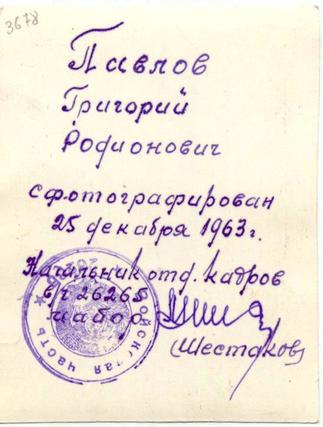 3678
Павлов
Григорий
Родионович
сфотографирован
25 декабря 1963 г.
Начальник отд. кадров
в/ч 26265
(Шестаков)
Войсковая часть